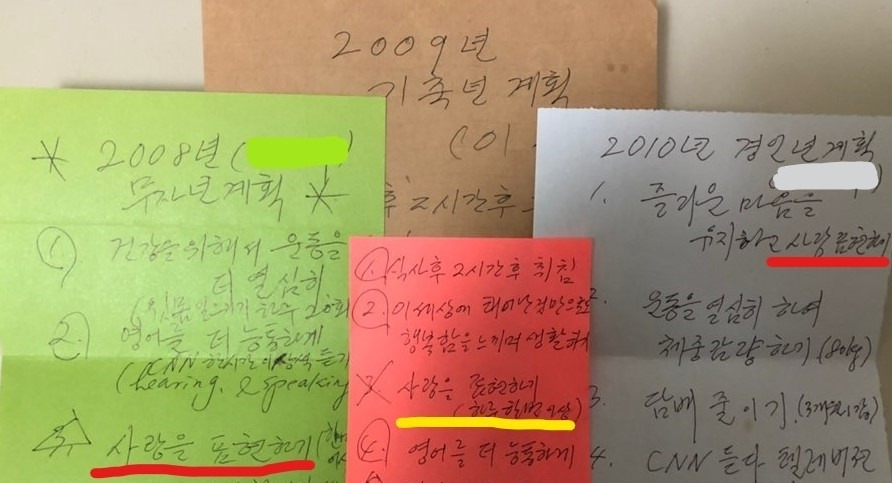 2009년
기축년 계획
(01
후 2시간후
* 2008년 (
무자년계획 *
① 건강을 위해서 운동을
더 열심히
(윗몸일으키기 하루 20회
② 영어를 더 능통하게
(CNN 한시간 이상씩 듣기
hearing, & speaking
③ 사랑을 표현하기
① 식사후 2시간후 취침
② 이세상에 태어난것만으로
행복함을 느끼며 생활하기
③ 사랑을 표현하기
(하루한번이상)
④ 영어를 더 능통하게
2010년 경인년계획
1. 즐거운 마음을
유지하고 사랑표현하기
2. 운동을 열심히 하여
체중감량하기 (80kg)
3. 담배 줄이기
4. CNN 듣다 텔레비전